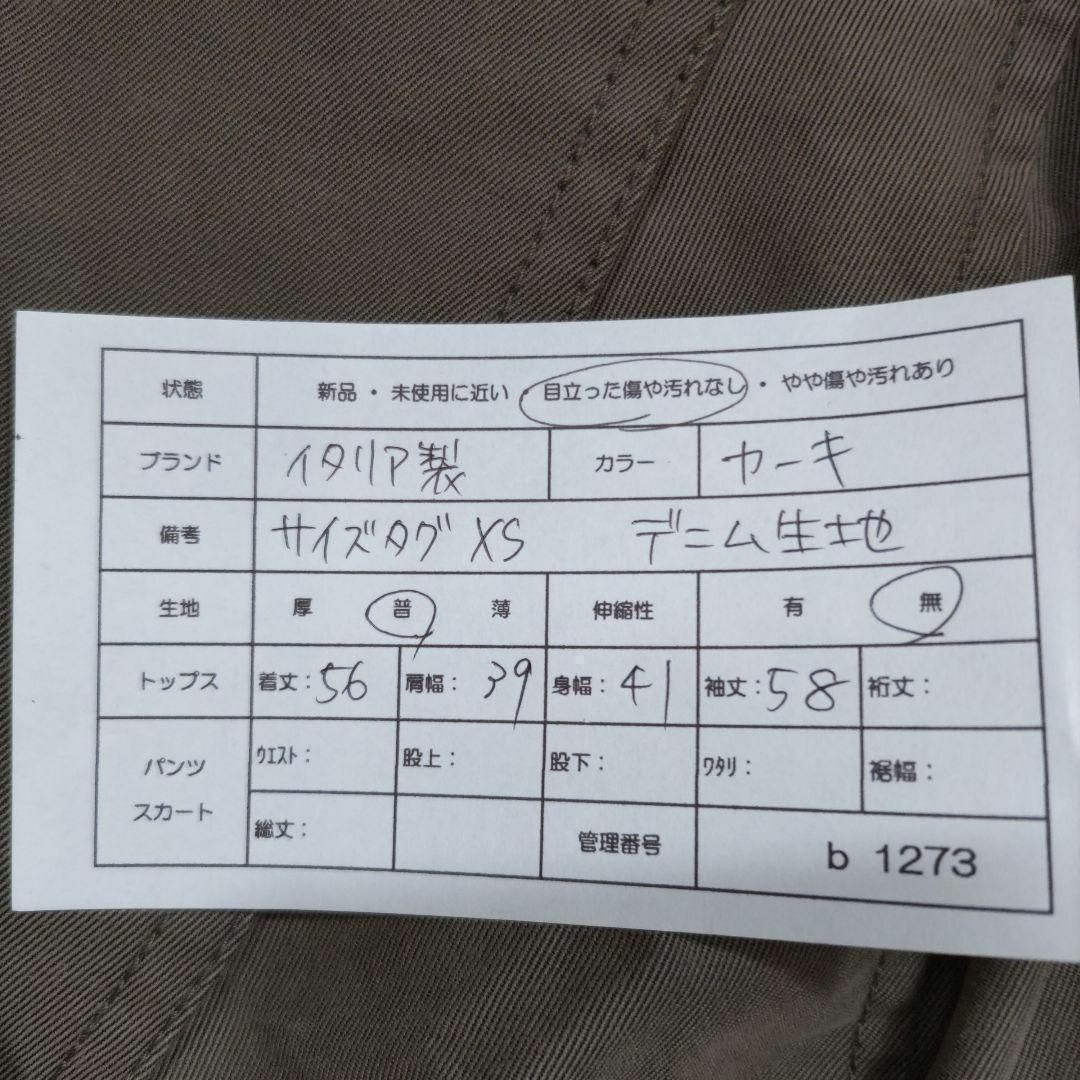 状態 新品・未使用に近い・目立った傷や汚れなし・やや傷や汚れあり
ブランド イタリア製 カラー カーキ
備考 サイズタグ XS デニム生地
生地 厚 普 薄 伸縮性 有 無
トップス 着丈:56 肩幅:39 身幅:41 袖丈:58 裄丈:
パンツ スカート ウエスト: 股上: 股下: ワタリ: 裾幅:
総丈: 管理番号 b 1273